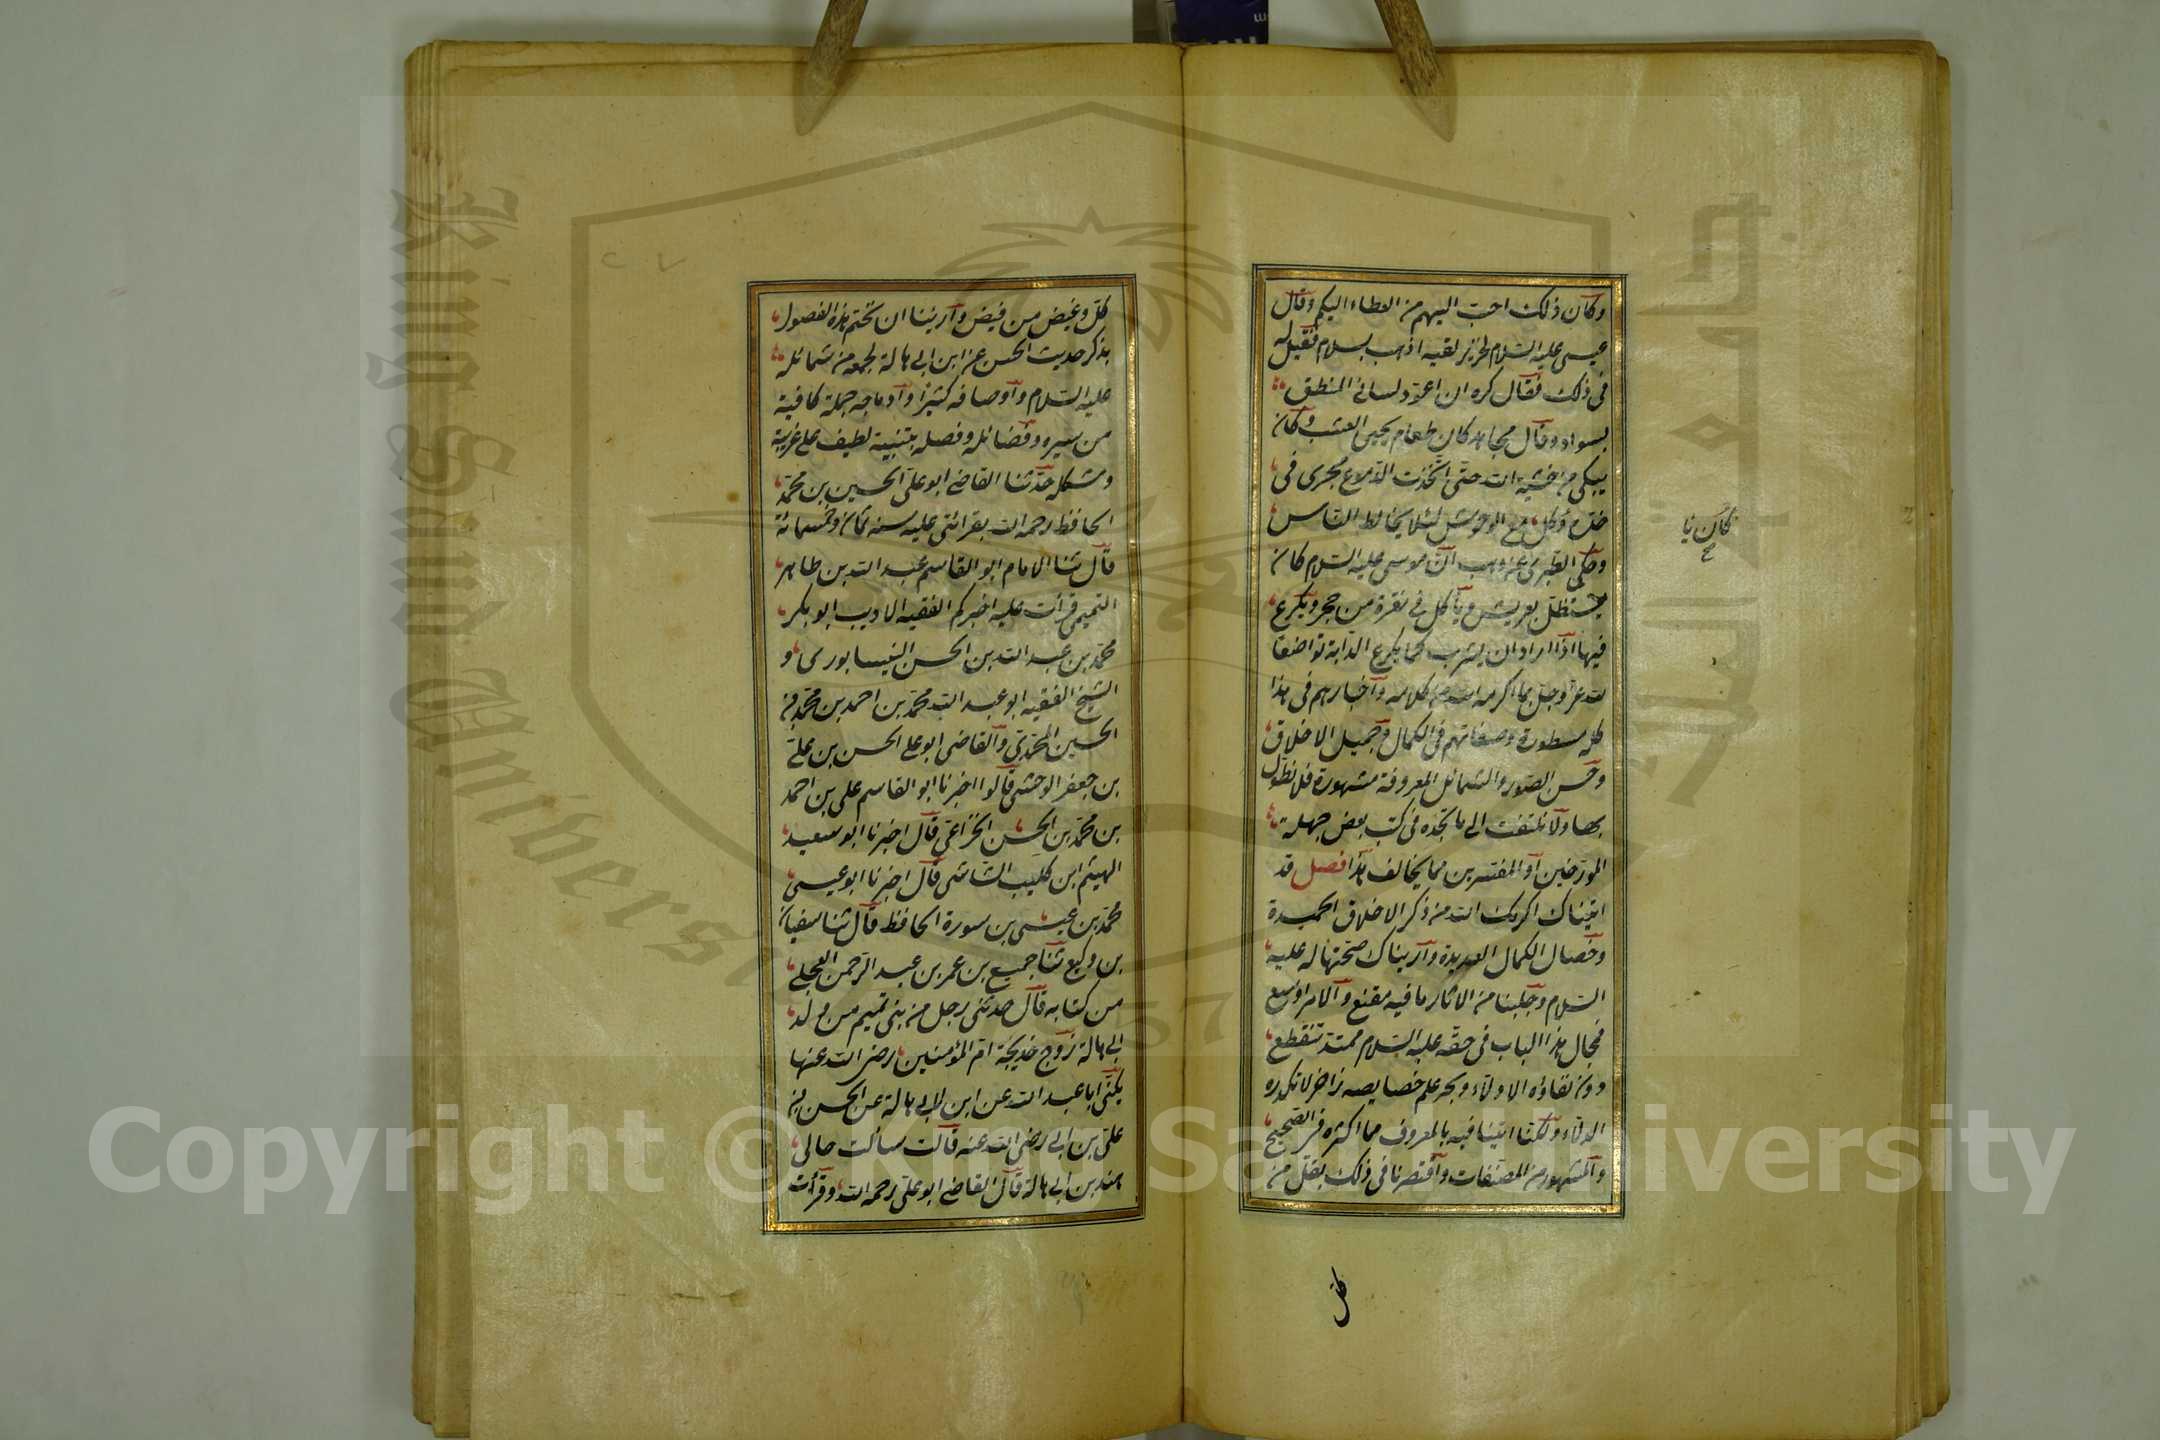 وكان ذلك احب اليهم من العطاء اليكم وقال
عيسى عليه السلام لخنزير لقيه اذهب بسلام فقيل له
فى ذلك فقال كره ان اعود لسانى المنطق
بسواد وقال مجاهد كان طعام يحيى العشب وكان
يبكى من خشية الله حتى اتخذت الدموع مجرى فى
خده وكل مع الوحوش لئلا يخالط الناس
وحكى الطبرى عن وهب ان موسى عليه السلام كان
يستظل بعريش ويأكل فى نقرة من حجر ويكرع
فيها اذا اراد ان يشرب كما يكرع الدابة تواضعا
لله عز وجل بما اكرمه الله من كلامه واخبارهم فى هذا
كله مسطورة وصفاتهم فى الكمال وجميل الاخلاق
وحسن الصور والشمائل المعروفة مشهورة فلا نطول
بها ولا نلتفت الى ما تجده فى كتب بعض جهلة
المورخين او المفسرين مما يخالف هذا فصل قد
اتيناك اكرمك الله من ذكر الاخلاق الحميدة
وخصال الكمال العديدة واريناك صحتها له عليه
السلام وجلبنا من الاثار ما فيه مقنع والامر اوسع
فمجال هذا الباب فى حقه عليه السلام ممتد تنقطع
دون نفاده الادلاء وبحر علم خصايصه زاخر لا تكدره
الدلاء ولكنا اتينا فيه بالمعروف مما اكثره فى الصحيح
والمشهور من المصنفات واقتصرنا فى ذلك بقل من
كان يا
كل
كل وغيض من فيض وارينا ان نختم هذه الفصول
بذكر حديث الحسن عن ابن ابى هالة لجمعه من شمائله
عليه السلام واوصافه كثيرا وادماجه جملة كافية
من سيره وفضائله وفصله بتنبيه لطيف على غريبه
ومشكله حدثنا القاضى ابو على الحسين بن محمد
الحافظ رحمه الله بقرائتى عليه سنة ثمان وخمسمائة
قال ثنا الامام ابو القاسم عبد الله بن طاهر
التميمى قرأت عليه اخبركم الفقيه الاديب ابو بكر
محمد بن عبد الله بن الحسن النيسابورى و
الشيخ الفقيه ابو عبد الله محمد بن احمد بن محمد بن
الحسين المحمدى والقاضى ابو على الحسن بن على
بن جعفر الوخشى قالوا اخبرنا ابو القاسم على بن احمد
بن محمد بن الحسن الخزاعى قال اخبرنا ابو سعيد
الهيثم ابن كليب الشاشى قال اخبرنا ابو عيسى
محمد بن عيسى بن سورة الحافظ قال ثنا سفيان
بن وكيع ثنا جميع بن عمر بن عبد الرحمن العجلى
من كتابه قال حدثنى رجل من بنى تميم من ولد
ابى هالة زوج خديجة ام المؤمنين رضى الله عنها
يكنى ابا عبد الله عن ابن لابى هالة عن الحسن بن
على بن ابى رضى الله عنه قالت سألت خالى
هند بن ابى هالة قال القاضى ابو على رحمه الله وقرأت
King Saud University
1957
Copyright © King Saud University